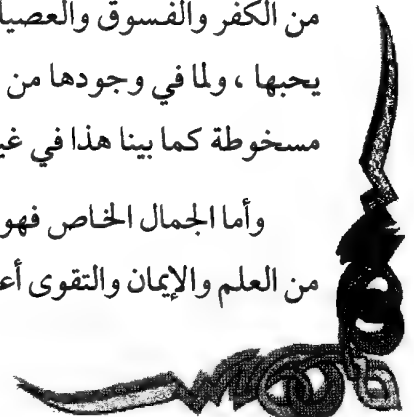 من الكفر والفسوق والعصيا
يحبها ، ولما في وجودها من
مسخوطة كما بينا هذا في غي
وأما الجمال الخاص فهو
من العلم والإيمان والتقوى أع